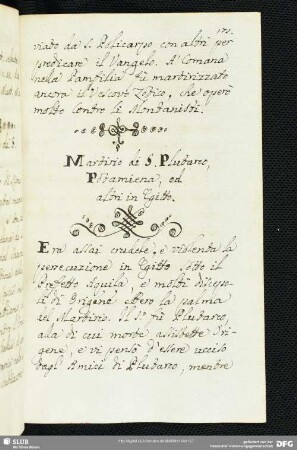 viato da S. Policarpo con altri per
predicare il Vangelo. A' Comana
nella Panfilia fù martirizzato
ancora il Vescovo Zotico, che operò
molto contro li Montanisti.
Martirio di S. Plutarco,
Potamiena, ed
altri in Egitto.
Era assai crudele, e violenta la
persecuzione in Egitto sotto il
Prefetto Aquila, e molti discepo-
li di Origene ebbero la palma
del Martirio. Il 1º fù Plutarco,
alla di cui morte assistette Ori-
gene, e vi pensò d'essere ucciso
dagli Amici di Plutarco, mentre
SLUB
Wir führen Wissen.
gefördert von der
DFG